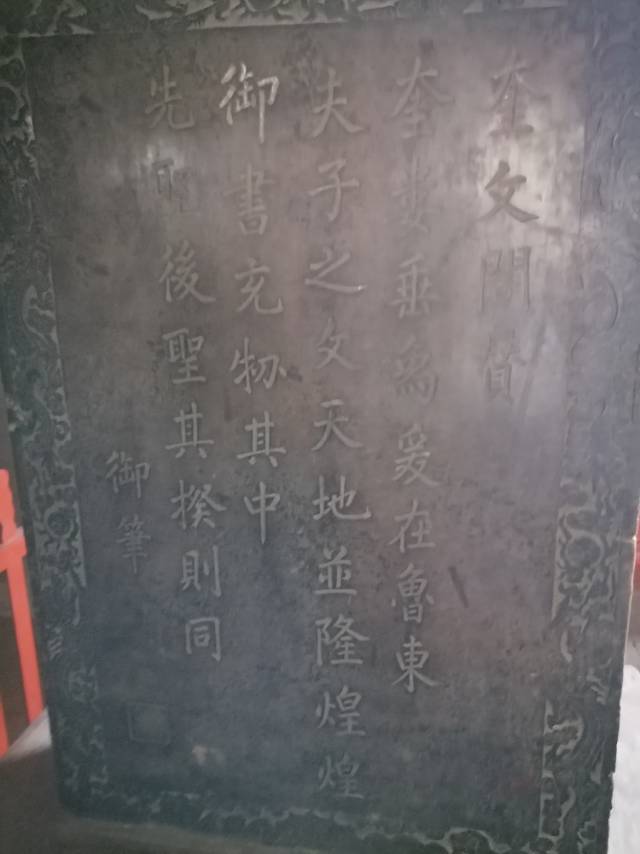 奎文閣贊
奎婁垂象爰在魯東
夫子之文天地並隆煌煌
御書充牣其中
先聖後聖其揆則同
御筆